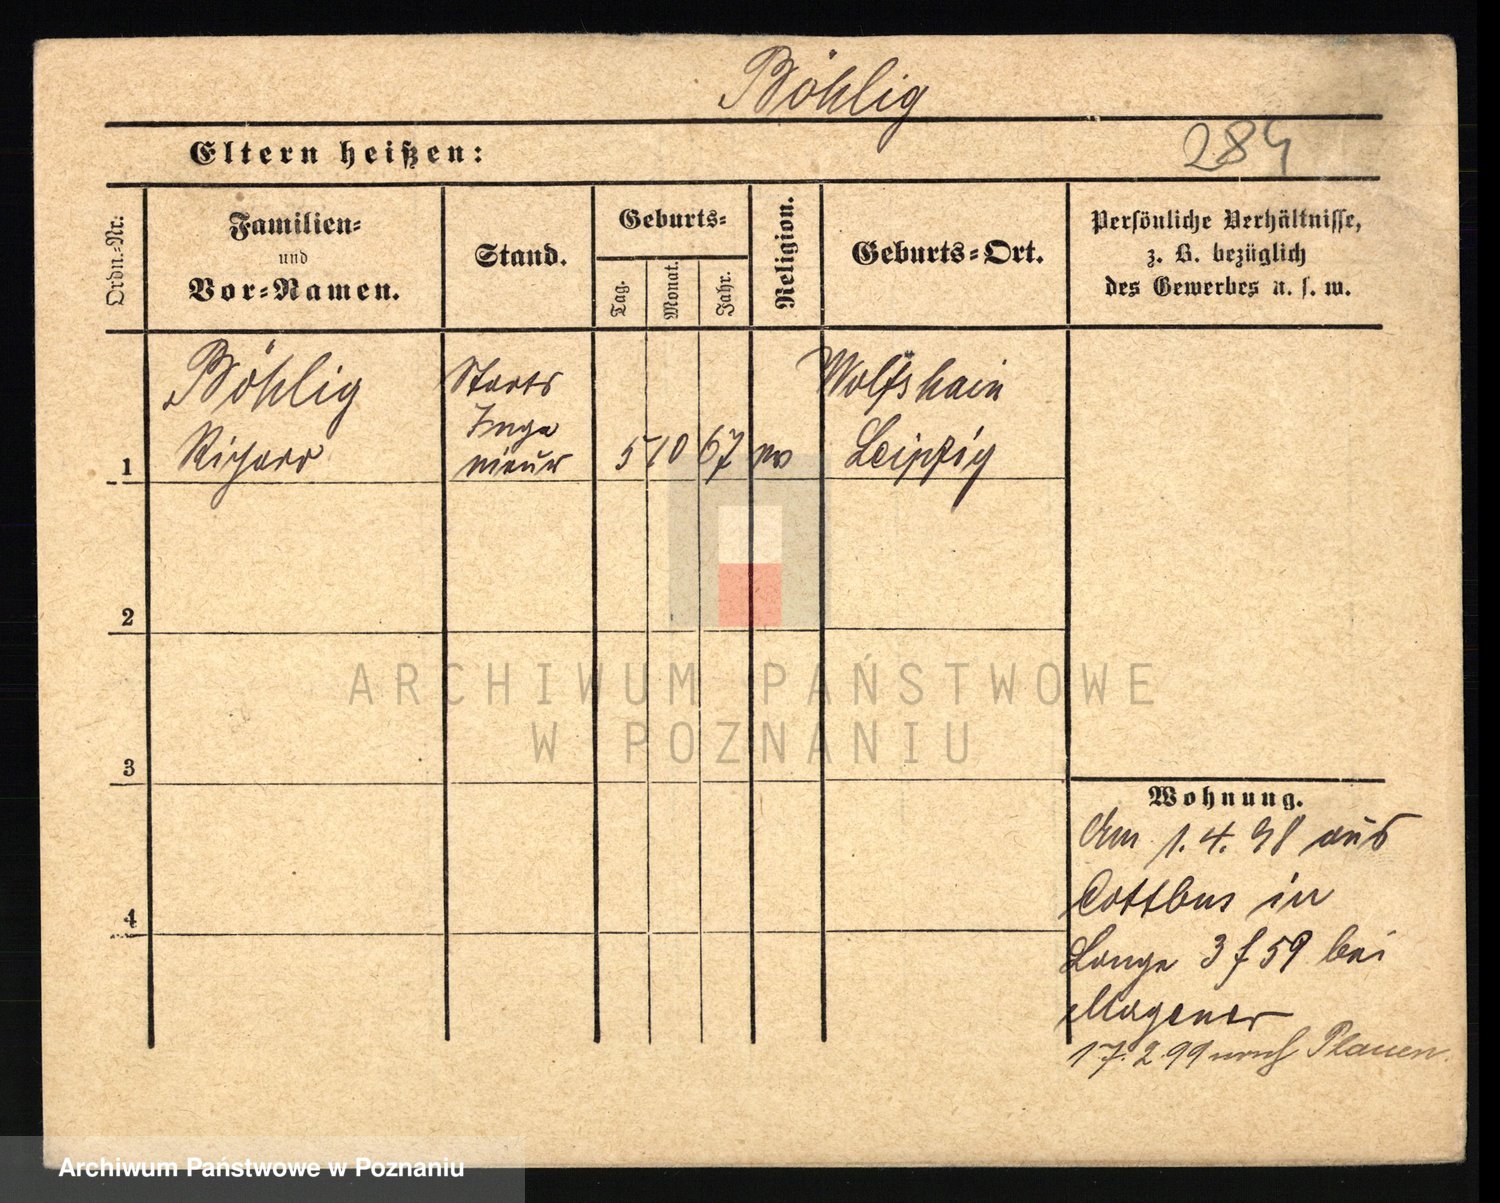 Böhlig
Eltern heißen:
284
Ordn.-Nr:
Familien-
und
Vor-Namen.
Stand.
Geburts-
Tag.
Monat.
Jahr.
Religion.
Geburts-Ort.
Persönliche Verhältnisse,
z. B. bezüglich
des Gewerbes u. s. w.
Böhlig
Richard
Staats
Inge
nieur
1
5 10 67 ev
Wolfshain
Leipzig
2
3
4
Wohnung.
Am 1.4.98 aus
Cottbus in
Lange 3 f 59 bei
Wagener
17.2 99 nach Plauen
ARCHIWUM PAŃSTWOWE
W POZNANIU
Archiwum Państwowe w Poznaniu